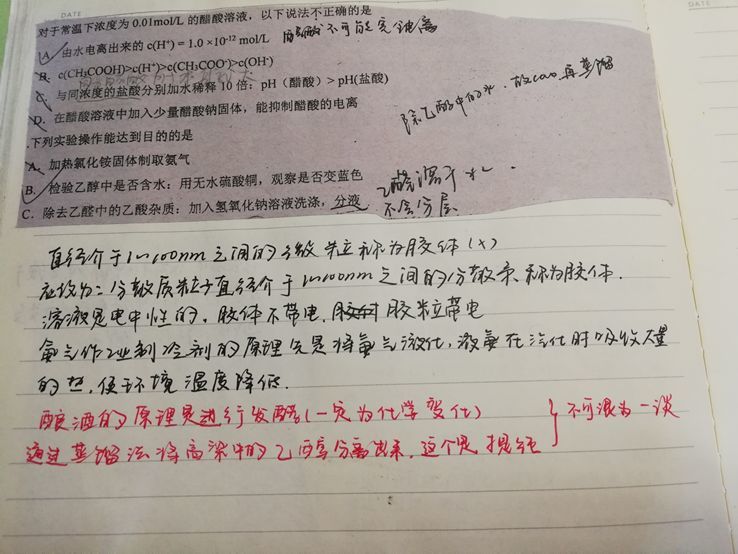 DATE
DATE
对于常温下浓度为 0.01mol/L 的醋酸溶液，以下说法不正确的是
A. 由水电离出来的 c(H⁺) = 1.0 ×10⁻¹² mol/L 不可能完全电离
B. c(CH₃COOH)>c(H⁺)>c(CH₃COO⁻)>c(OH⁻)
C. 与同浓度的盐酸分别加水稀释 10 倍：pH（醋酸）> pH(盐酸)
D. 在醋酸溶液中加入少量醋酸钠固体，能抑制醋酸的电离
除乙醇中的水，放CaO再蒸馏
下列实验操作能达到目的的是
A. 加热氯化铵固体制取氨气
B. 检验乙醇中是否含水：用无水硫酸铜，观察是否变蓝色
C. 除去乙醛中的乙酸杂质：加入氢氧化钠溶液洗涤，分液
乙醛溶于水.
不会分层
直径介于1~100nm之间的微粒称为胶体(x)
应改为：分散质粒子直径介于1~100nm之间的分散系称为胶体.
溶液是电中性的，胶体不带电，胶粒带电
氨气作工业制冷剂的原理是将氨气液化，液氨在汽化时吸收大量
的热，使环境温度降低.
酿酒的原理是进行发酵(一定为化学变化)
通过蒸馏法将高粱中的乙醇分离出来，这个是提纯
不可混为一谈